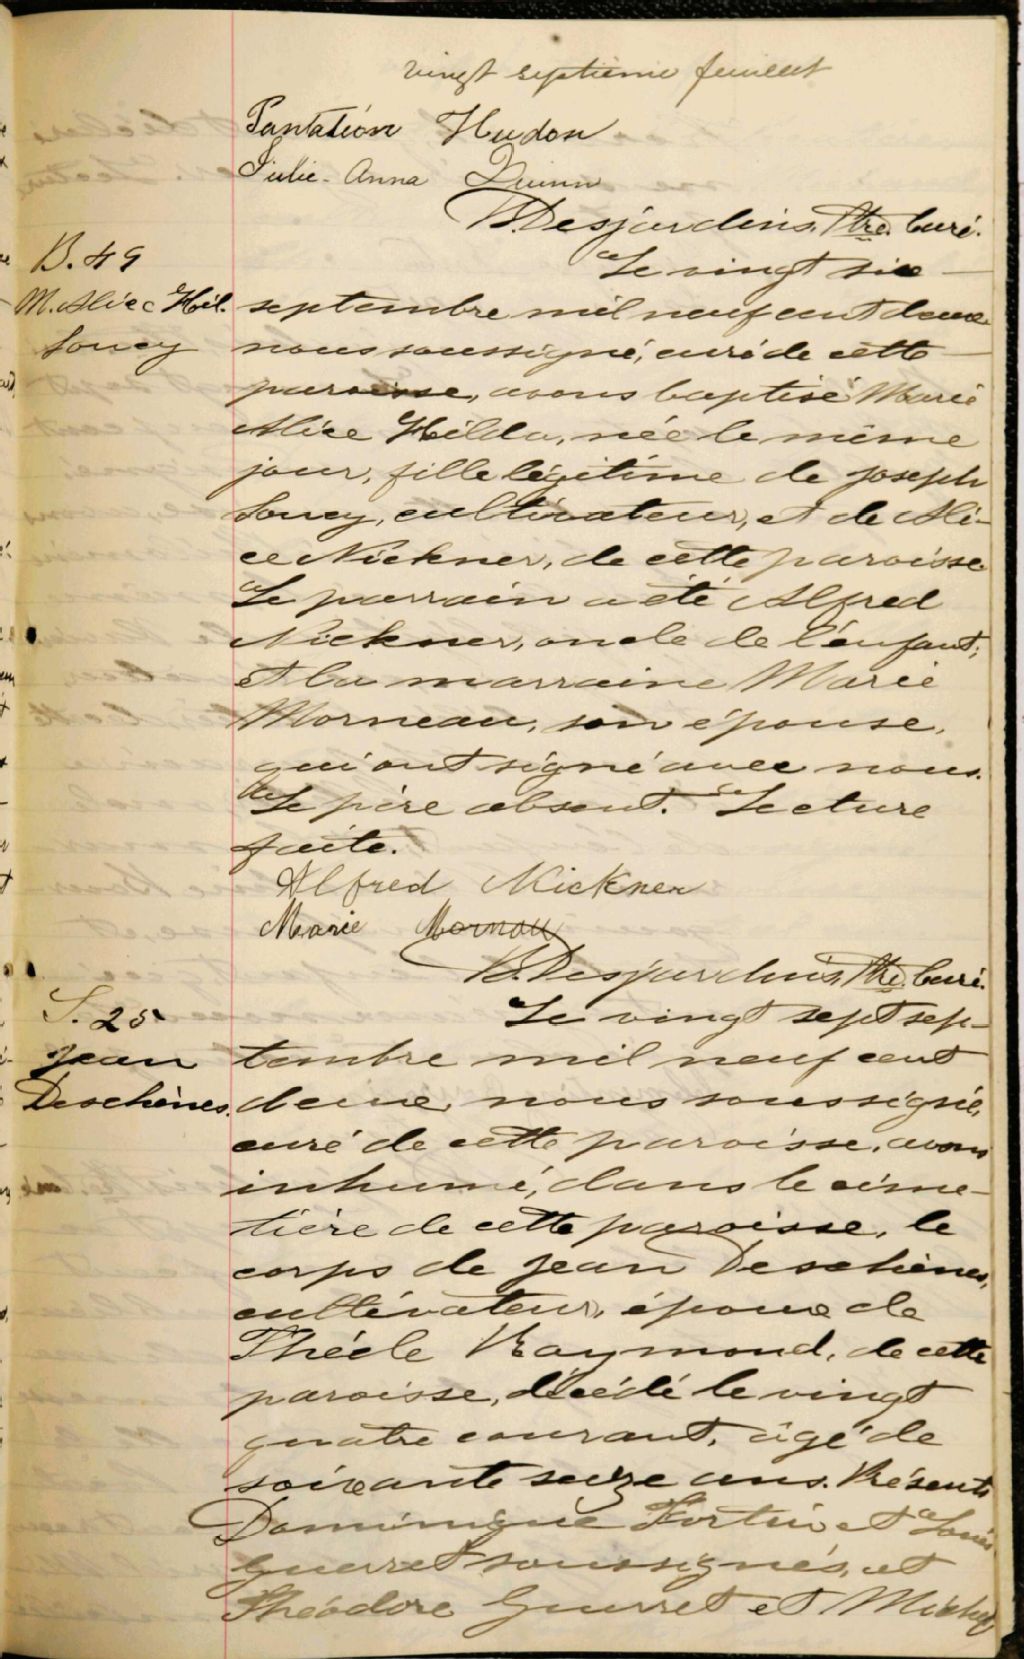 vingt septième feuillet
Pantaléon Hudon
Julie-Anna Quinn
B. Desjardins, Ptre. Curé.
B. 49
M. Alice Hél.
Soucy
Le vingt six
septembre mil neuf cent deux
nous soussigné, curé de cette
paroisse, avons baptisé Marie
Alice Hélda, née le même
jour, fille légitime de Joseph
Soucy, cultivateur, et de Ali-
ce Nickner, de cette paroisse
Le parrain a été Alfred
Nickner, oncle de l'enfant;
et la marraine Marie
Morneau, son épouse,
qui ont signé avec nous.
Le père absent. Lecture
faite.
Alfred Nickner
Marie Mornau
B. Desjardins, Ptre. Curé.
S. 25
Jean
Deschènes.
Le vingt sept sep-
tembre mil neuf cent
deux, nous soussigné,
curé de cette paroisse, avons
inhumé, dans le cime-
tière de cette paroisse, le
corps de Jean Deschènes,
cultivateur, époux de
Thècle Raymond, de cette
paroisse, décédé le vingt
quatre courant, âgé de
soixante seize ans. Présents
Dominique Fortin et Louis
Guerret soussignés, et
Théodore Guerret et Michel